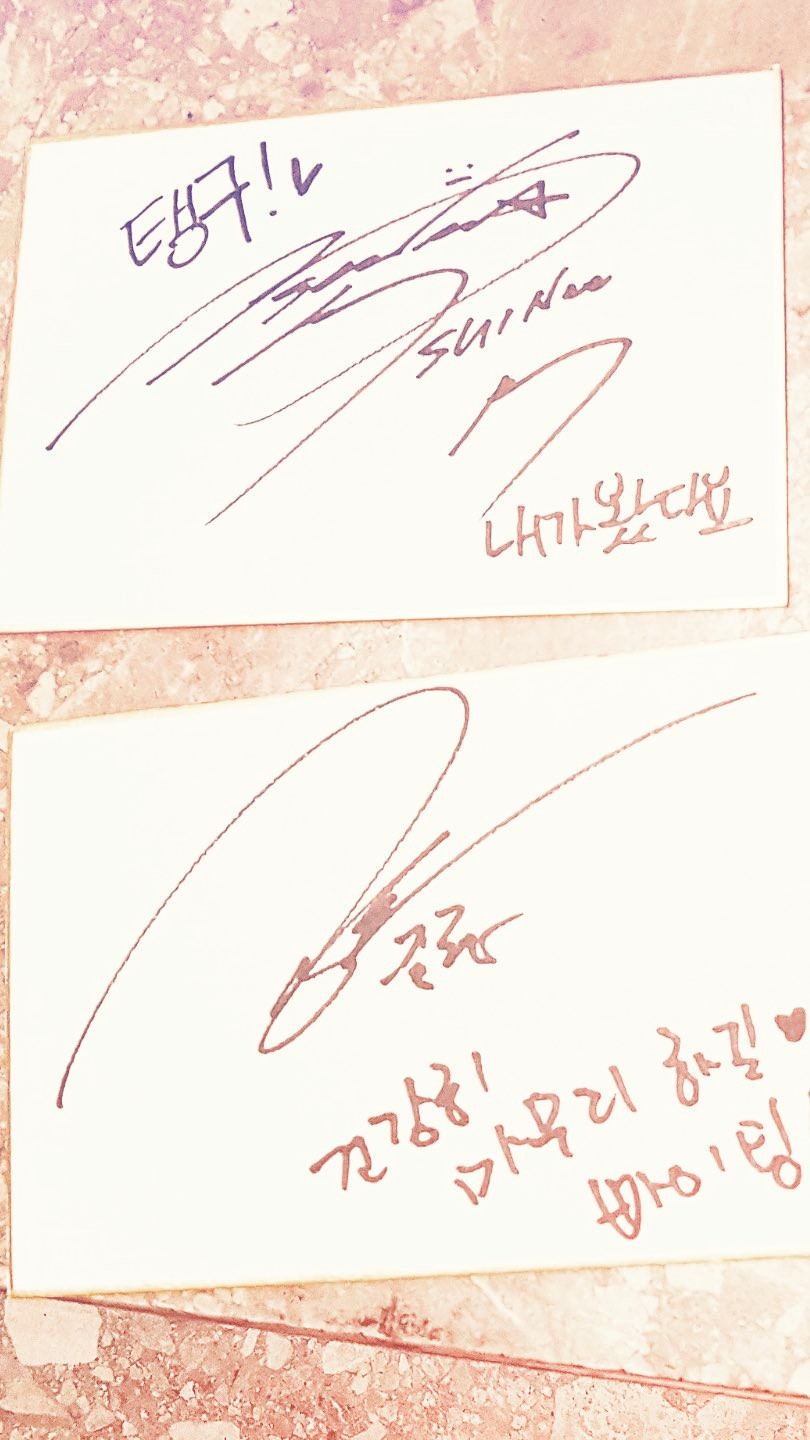 탱구!
SHINee
내가봤다요
종현
건강히
마무리 하길
빠이팅